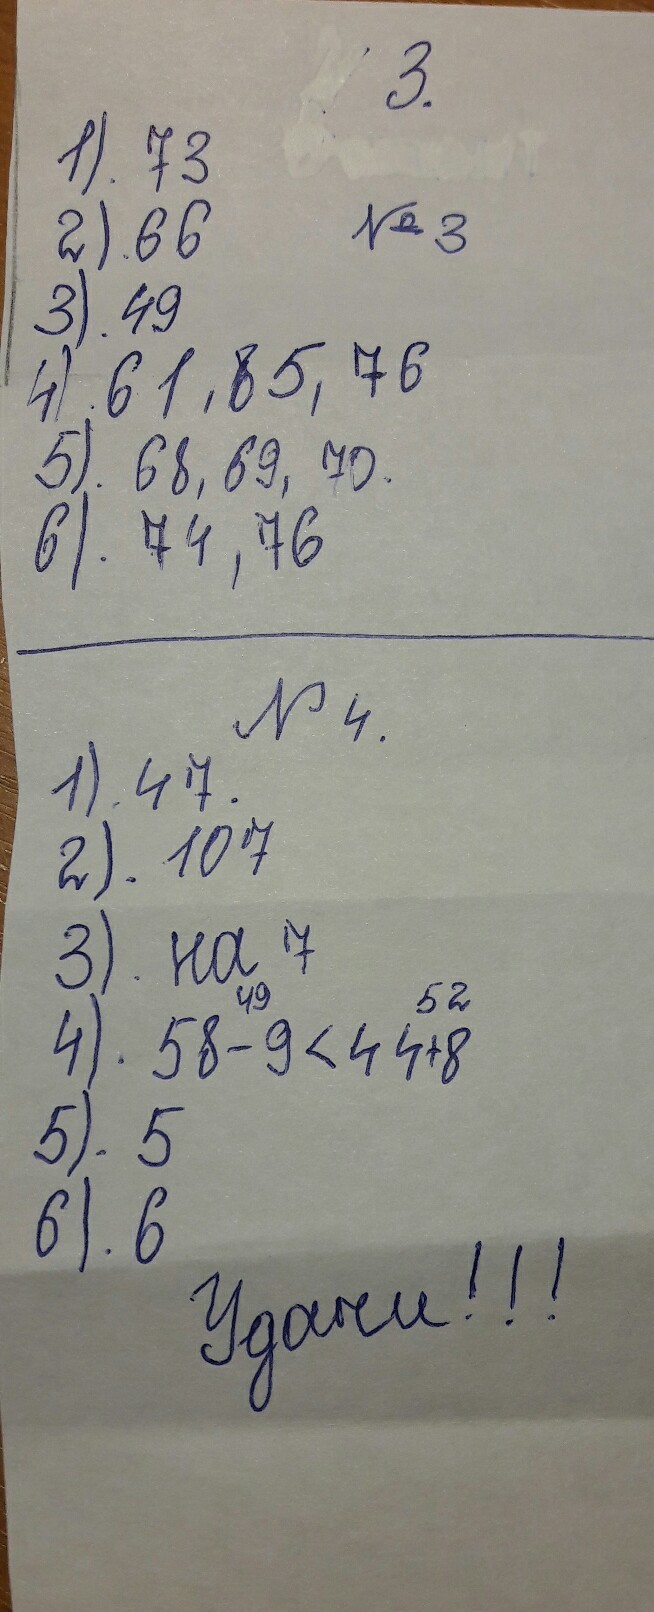 3.
1). 73
2). 66 № 3
3). 49
4). 61, 85, 76
5). 68, 69, 70.
6). 74, 76
N 4.
1). 47.
2). 107
3). на 7
49 52
4). 58-9<44+8
5). 5
6). 6
Удачи!!!